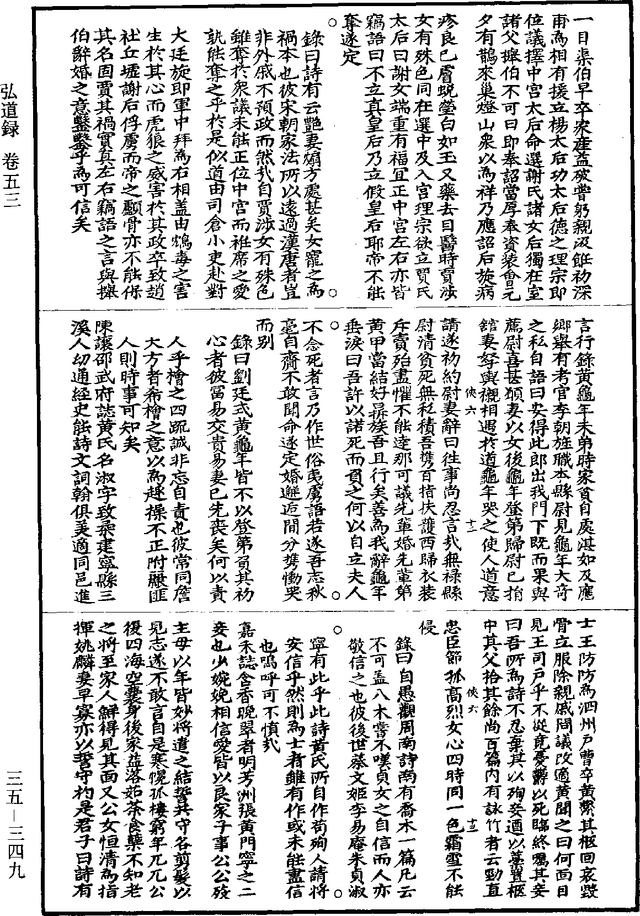 弘道録 卷五三
三五—三四九
一目渠伯早卒家產益破嘗躬親汲飪初深
甫為相有援立楊太后功太后德之理宗即
位議擇中宮太后命選謝氏諸女后獨在室
諸父攑伯不可曰即奉詔當厚奉資裝會元
夕有鵲來巢燈山衆以為祥乃應詔后旋病
疹良已膚蛻瑩白如玉又藥去目醫時賈涉
女有殊色同在選中及入宮理宗欲立賈氏
太后曰謝女端重有福宜正中宮左右亦皆
竊語曰不立真皇后乃立假皇后耶帝不能
奪遂定
錄曰詩有云艷妻煽方處甚矣女寵之為
禍本也彼宋朝家法所以遠過漢唐者豈
非外戚不預政而然哉自賈涉女有殊色
雖奪於衆議未能正位中宮而袵席之愛
孰能奪之乎於是似道由司倉小吏赴對
大廷旋即軍中拜為右相蓋由鴆毒之害
生於其心而虎狼之威害於其政卒致趙
社丘墟謝后俘虜而帝之顱骨亦不能保
其名固賈其禍實真左右竊語之言與攑
伯辭婚之意鑿鑿乎為可信矣
言行錄黃龜年未第時家貧自處湛如及應
鄉舉有考官李朝旌職本縣尉見龜年大奇
之私自語曰安得此郎出我門下既而果與
薦尉喜甚願妻以女後龜年登第歸尉已捐
館妻孥輿櫬相遇於道龜年哭之使人道意
請遂初約尉妻辭曰往事尚忍言哉無祿縣
尉清貧死無私積吾擕百指扶護西歸衣裝
斥賣殆盡惟不能達那可議先輩婚先輩第
黃甲當結好鼎族吾且行矣善為我辭龜年
垂淚曰吾許以諾死而負之何以自立夫人
不念死者言乃作世俗夷虜語若遂吾志秋
毫自齎不敢聞命遂定婚邂逅間分擕慟哭
而别
錄曰劉廷式黃龜年皆不以登第負其初
心者彼富易交貴易妻已先喪矣何以責
人乎檜之四疏誠非忘自責也彼常同詹
大方者希檜之意以為趨操不正附離匪
人則時事可知矣
陳讓邵武府誌黃氏名淑字致柔建寧縣三
溪人幼通經史能詩文詞翰俱美適同邑進
士王防防為泗州戶曹卒黃繫其柩回哀毀
骨立服除親戚間議改適黃聞之曰何面目
見王司戶乎不從竟憂鬱以死臨終囑其妾
曰吾所為詩不忍棄其以殉妾遵以葬置柩
中其父拾其餘尚百篇內有詠竹者云勁直
忠臣節孤高烈女心四時同一色霜雪不能
侵
錄曰自愚觀周南詩南有喬木一篇凡云
不可盖八未嘗不嘆貞女之自信而人亦
敬信之也彼後世蔡文姬李易庵朱貞淑
寧有此乎此詩黃氏所自作苟殉人請將
安信乎然則為士者雖有作或未能盡信
也嗚呼可不慎哉
嘉禾誌含香晚翠者明芳洲張黃門寧之二
妾也少婉娩相信愛皆以良家子事公公殁
主母以年皆妙將遣之結誓共守各剪髮以
見志遂不敢言自是寒牕孤棲窮年兀兀公
後四海空囊身後家益落茹荼食蘗不知老
之將至家人鮮得見其面又公女恒清為指
揮姚麟妻早寡亦以誓守約是君子曰詩有